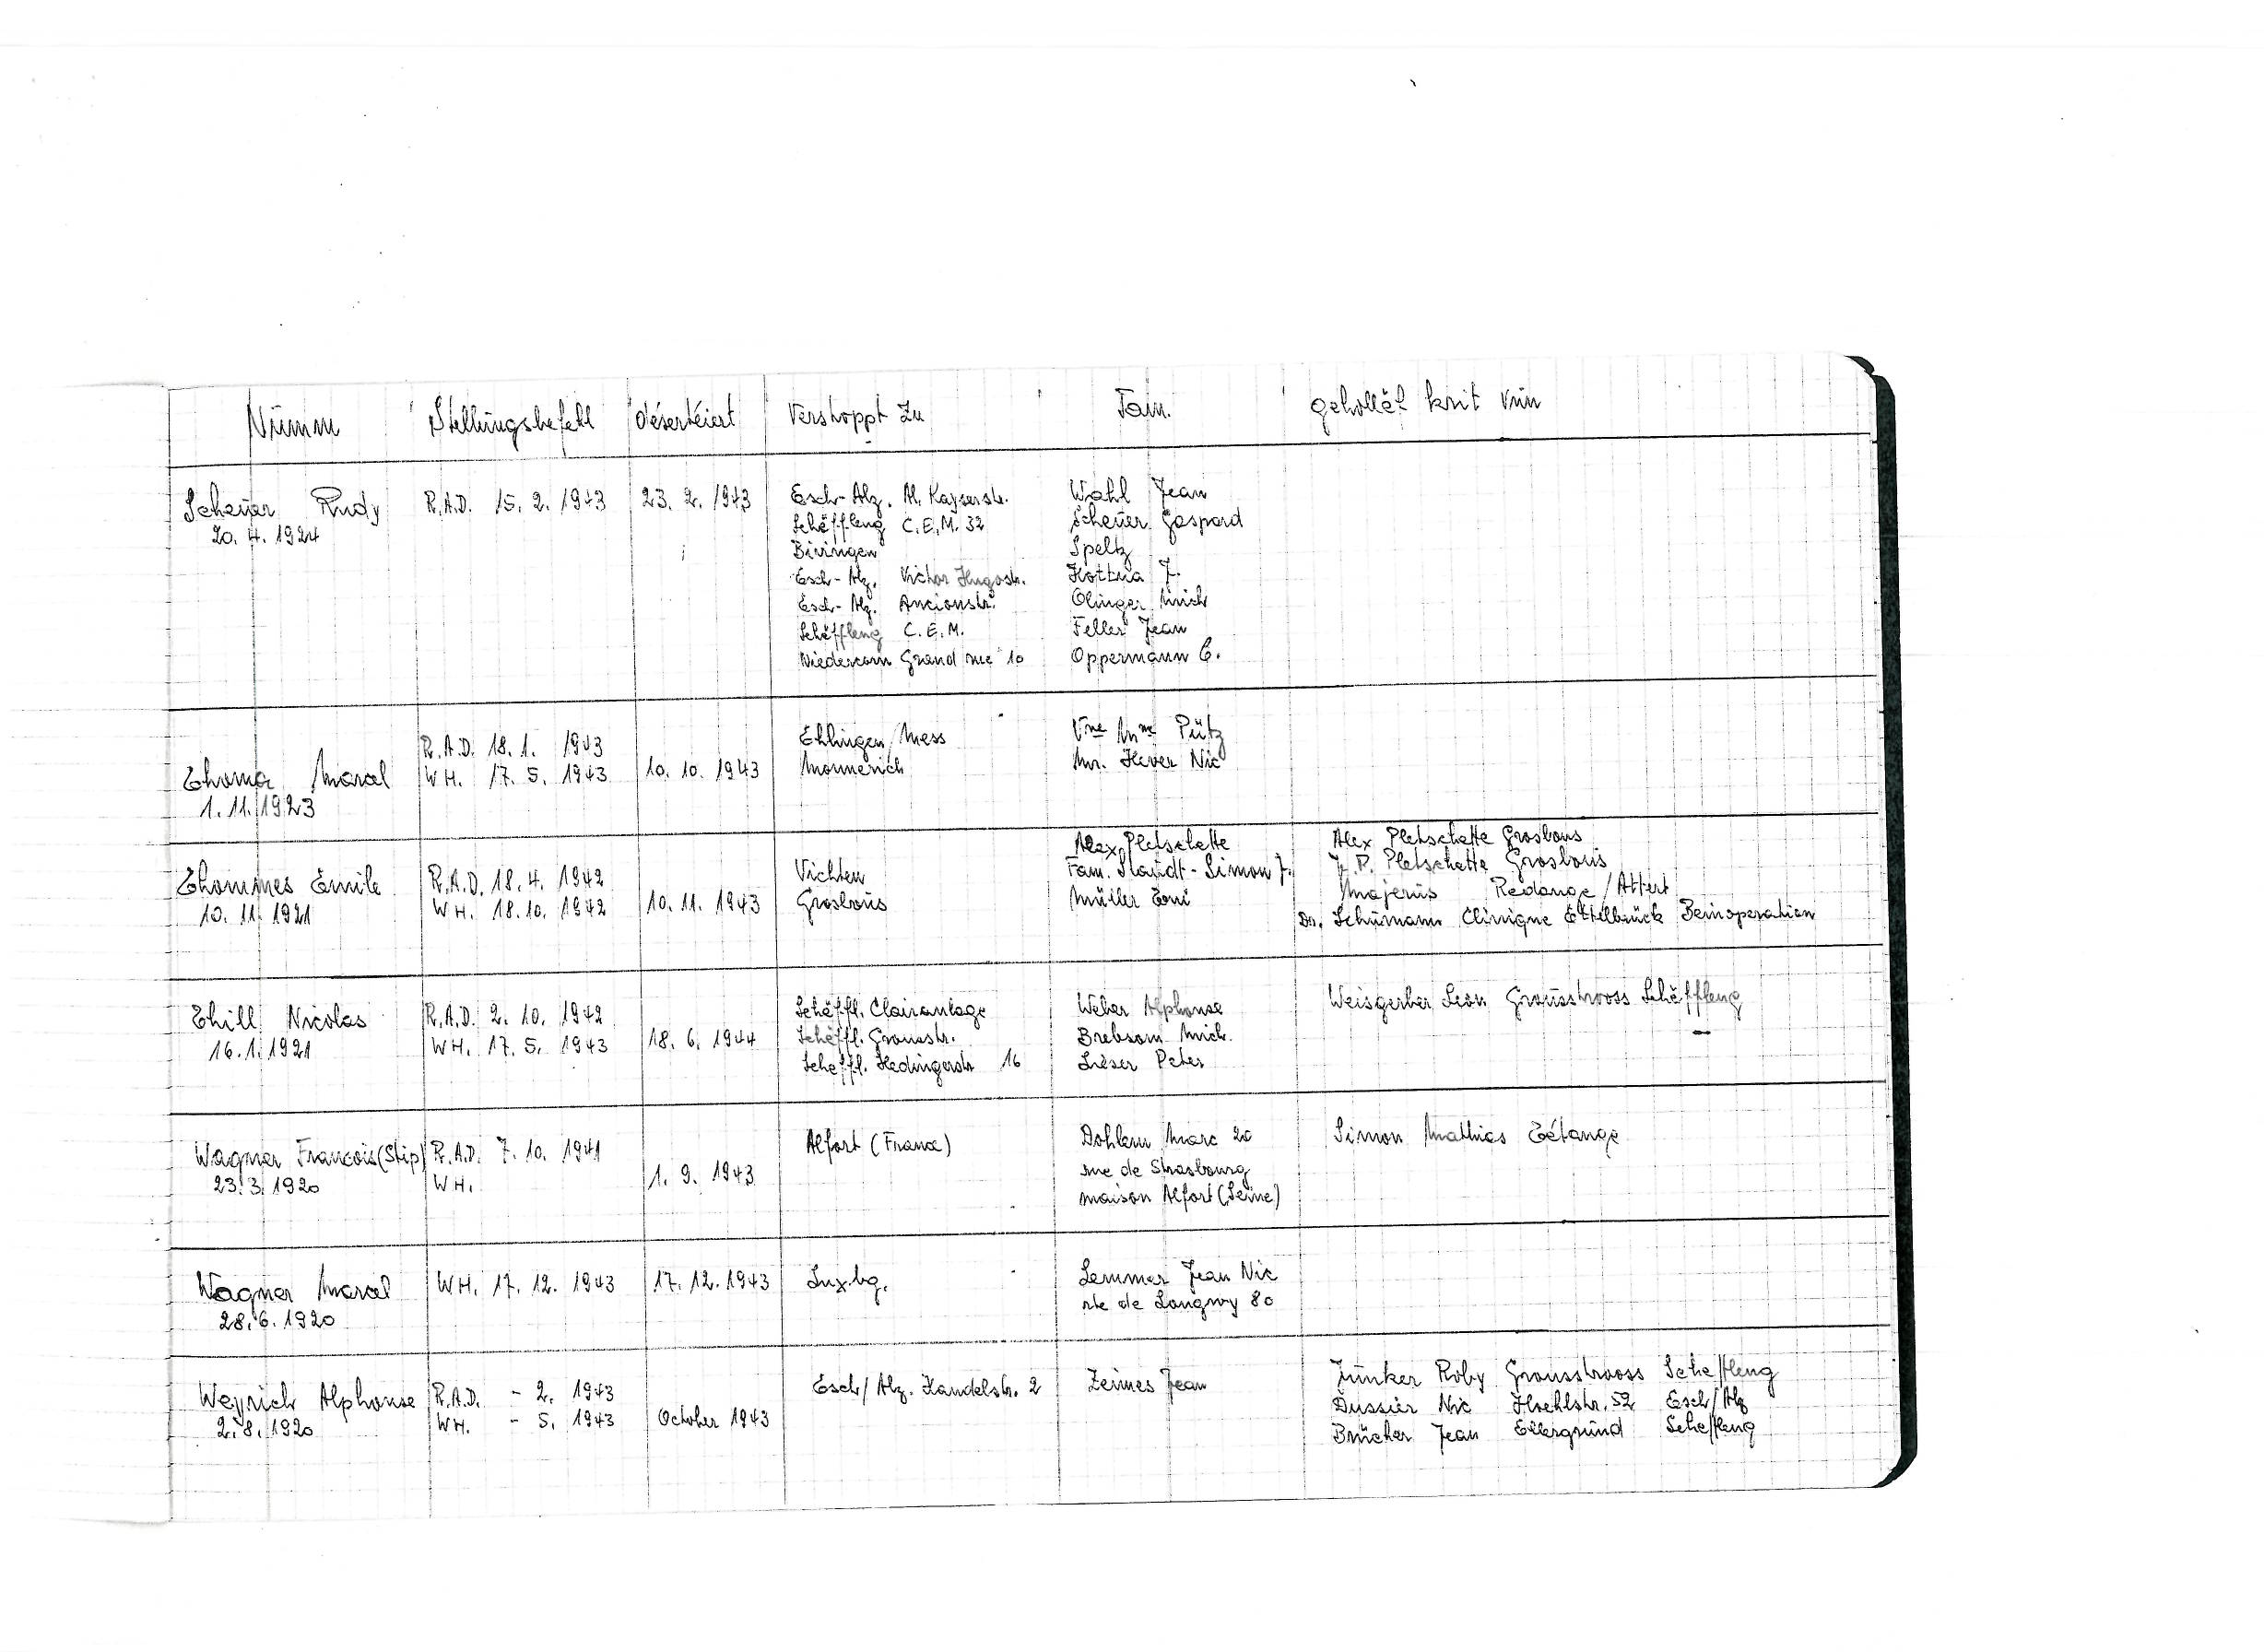 Numm Stellungsbefehl désertéiert Verstoppt zu Fam. gehollëf krit vun
Scheuer Rudy R.A.D. 15. 2. 1943 23. 2. 1943 Esch-Alz. Al. Kayserstr. Wahl Jean
20. 4. 1924 Schëffleng C.E.M. 32 Scheuer Gaspard
Bivingen Speltz
Esch-Alz. Victor Hugostr. Kottria J.
Esch-Alz. Ancionstr. Olinger Mich
Schëffleng C.E.M. Feller Jean
Niedercorn Grand rue 10 Oppermann C.
R.A.D. 18. 1. 1943 Ehlingen/Mess Vve Mme Pütz
Thoma Marcel WH. 17. 5. 1943 10. 10. 1943 Monnerich Mr. Hever Nic
1. 11. 1923
Alex Pletschette Alex Pletschette Grosbous
Thommes Emile R.A.D. 18. 4. 1942 Vichten Fam. Staudt-Simon J. J. P. Pletschette Grosbous
10. 11. 1921 WH. 18. 10. 1942 10. 11. 1943 Grosbous Müller Toni Majerus Redange/Attert
Dr. Schumann Clinique Ettelbrück Beinoperation
Thill Nicolas R.A.D. 2. 10. 1942 Schëffl. Clairantage Weber Alphonse Weisgerber Leon Grousstrooss Schëffleng
16. 1. 1921 WH. 17. 5. 1943 18. 6. 1944 Schëffl. Grousstr. Brebsom Mich.
Scheffl. Hedingerstr 16 Lieser Peter
Wagner Francois (Stip) R.A.D. 7. 10. 1941 Alfort (France) Dohlem Marc 20 Simon Mathias Tétange
23. 3. 1920 WH. 1. 9. 1943 rue de Strasbourg
maison Alfort (Seine)
Wagner Marcel WH. 17. 12. 1943 17. 12. 1943 Luxbg. Lemmer Jean Nic
28. 6. 1920 rte de Longwy 80
Weyrich Alphonse R.A.D. - 2. 1943 Esch/Alz. Handelstr. 2 Zeimes Jean Junker Roby Grousstrooss Scheffleng
2. 8. 1920 WH. - 5. 1943 October 1943 Dussier Nic Hoehlstr. 52 Esch/Alz
Brücher Jean Ellergrund Scheffleng